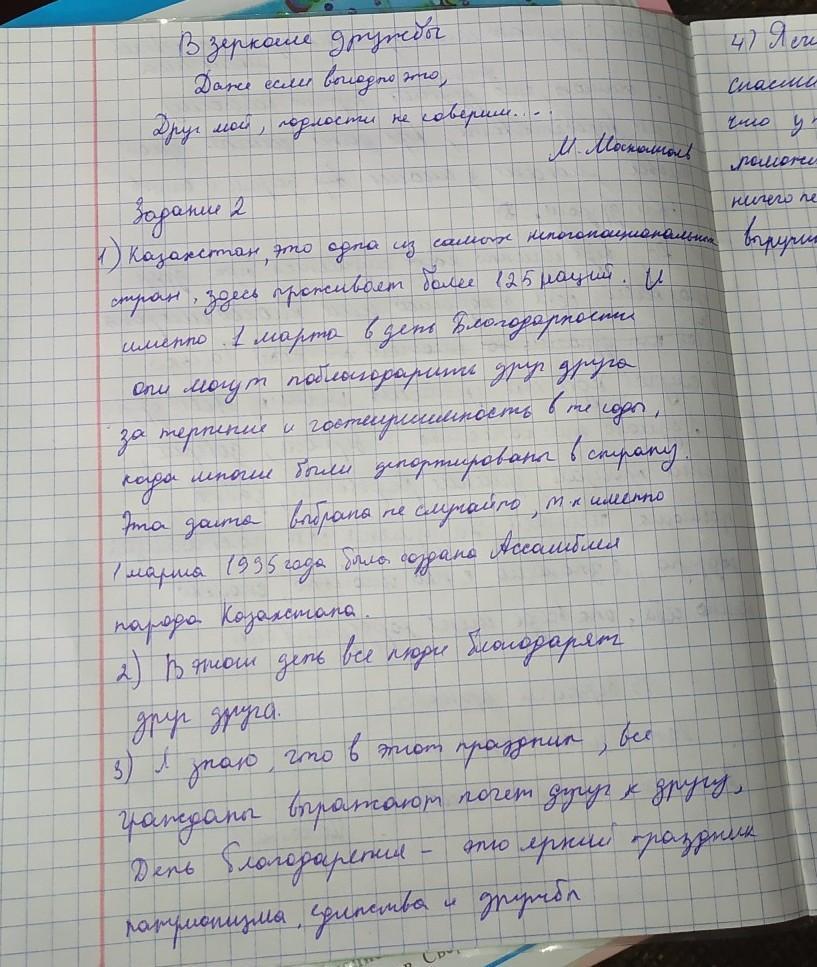 В зеркале дружбы
Даже если выгодно это,
Друг мой, подлости не говорим....
М.
Задание 2
1) Казахстан, это одна из самых многонациональных
стран, здесь проживает более 125 наций. И
именно 1 марта в день Благодарности
они могут поблагодарить друг друга
за терпение и гостеприимность в те годы,
когда многие были депортированы в страну.
Эта дата выбрана не случайно, т.к именно
1 марта 1995 года была создана Ассамблея
народа Казахстана.
2) В этот день все люди благодарят
друг друга.
3) Я знаю, что в этот праздник, все
граждане выражают почет друг к другу,
День благодарения - это яркий праздник
патриотизма, единства и дружбы
4) Я
что у
ничего не